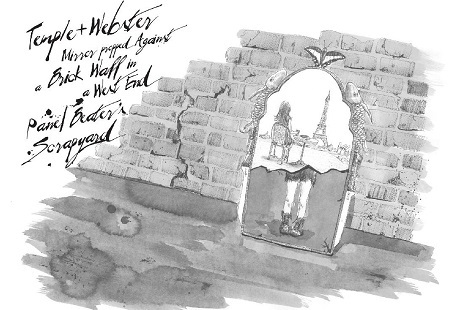 Temple + Webster
Mirror propped Against
a Brick Wall in
a West End
Panel Beater's
Scrapyard